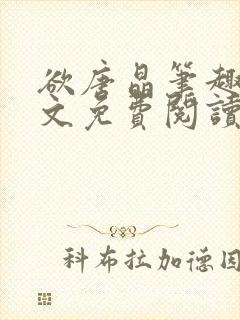 欲唐晶筆趣
文免費閱讀
科布拉加德因